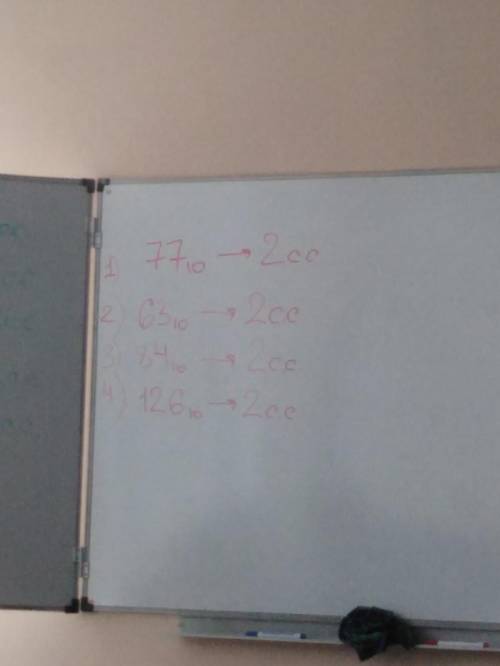 1) 77₁₀ → 2cc
2) 63₁₀ → 2cc
3) 84₁₀ → 2cc
4) 126₁₀ → 2cc